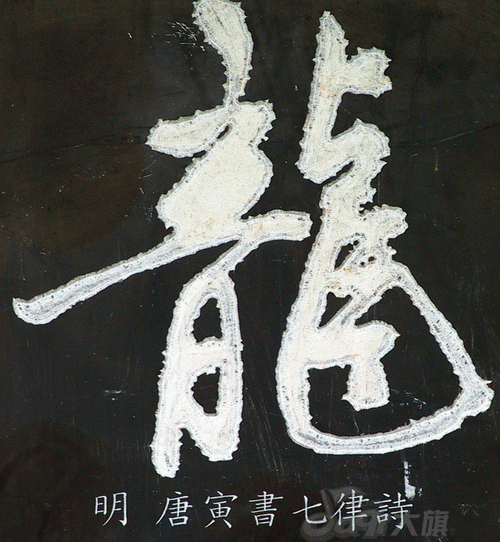 龍
明 唐寅書七律詩
大旗